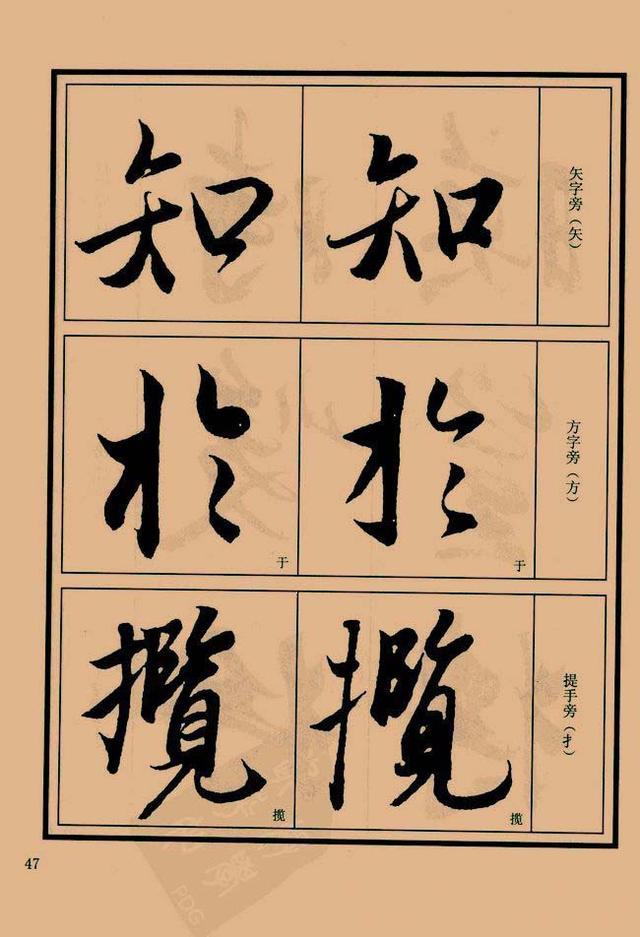 矢字旁（矢）
知
知
方字旁（方）
於
于
於
于
提手旁（扌）
攬
揽
攬
揽
47
PDG